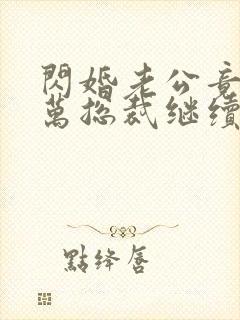 閃婚老公竟
萬總裁继续
點绛唇